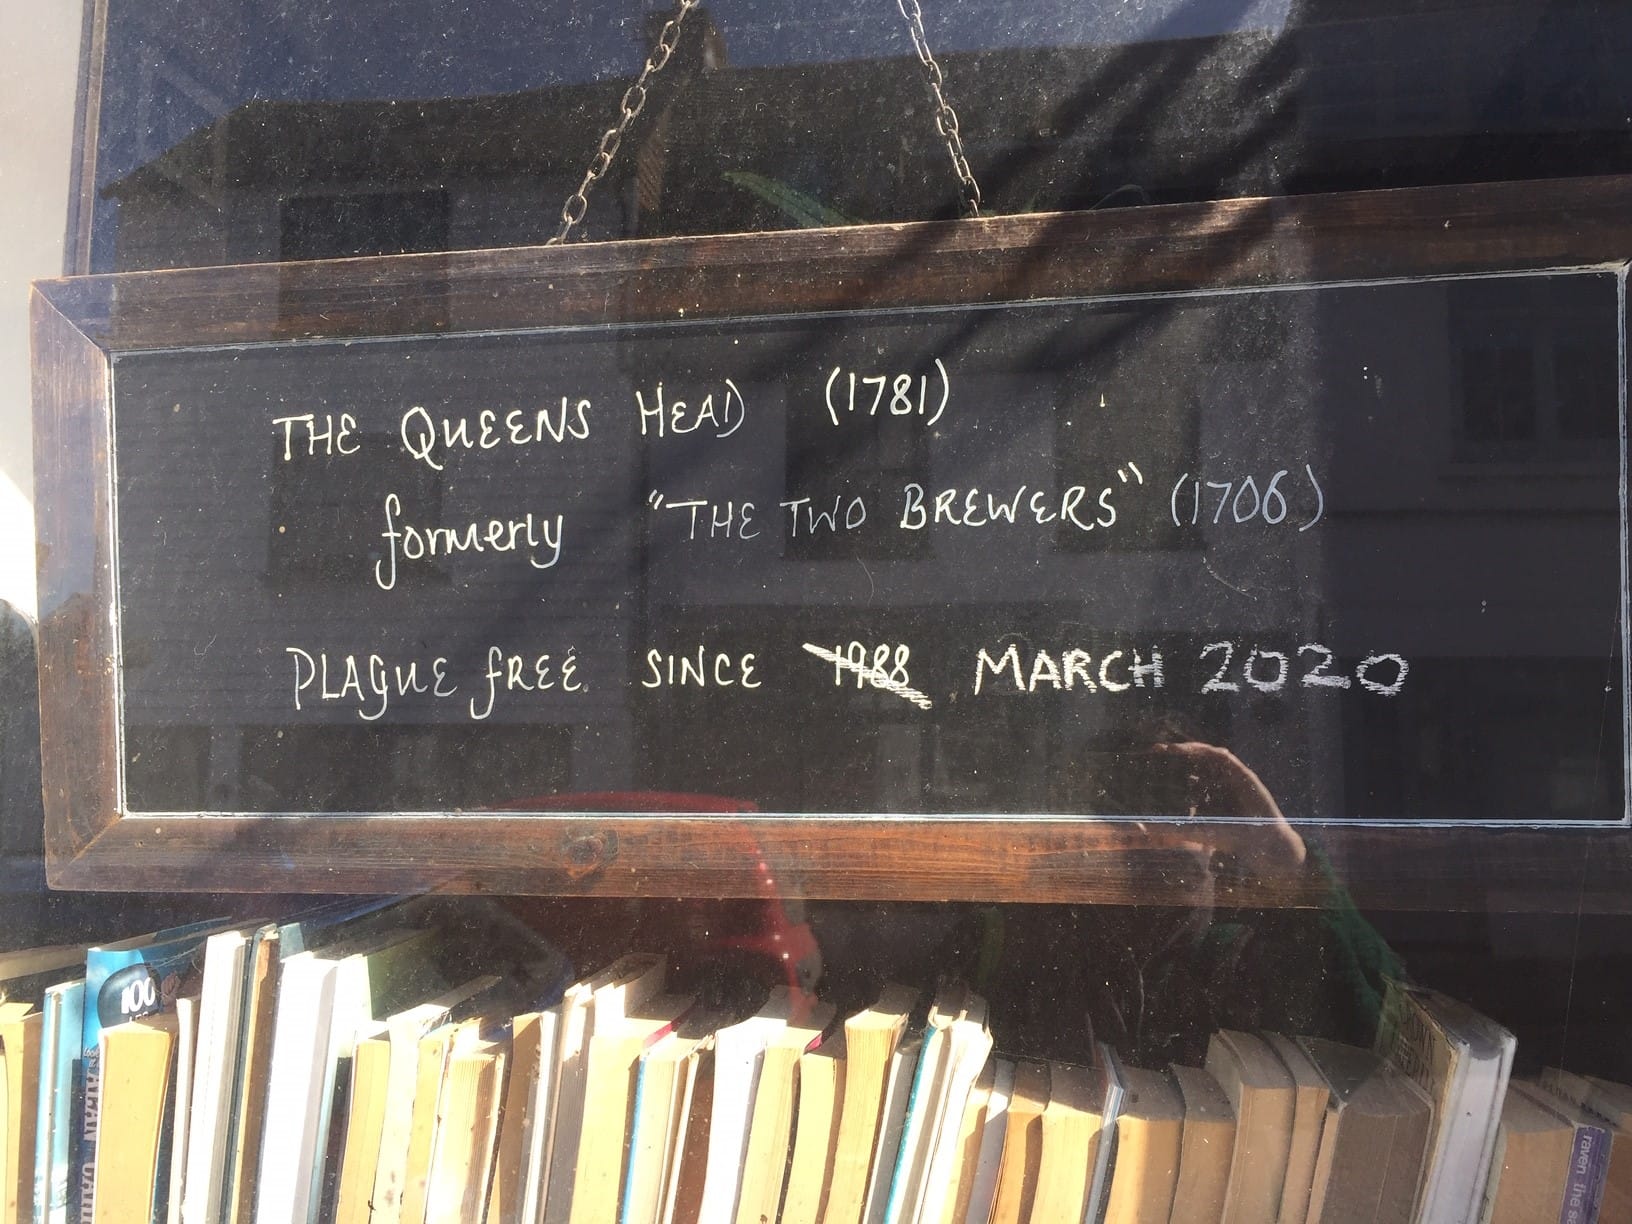 THE QUEENS HEAD (1781)
formerly "THE TWO BREWERS" (1706)
PLAGUE FREE SINCE 1988 MARCH 2020
100
raven the s